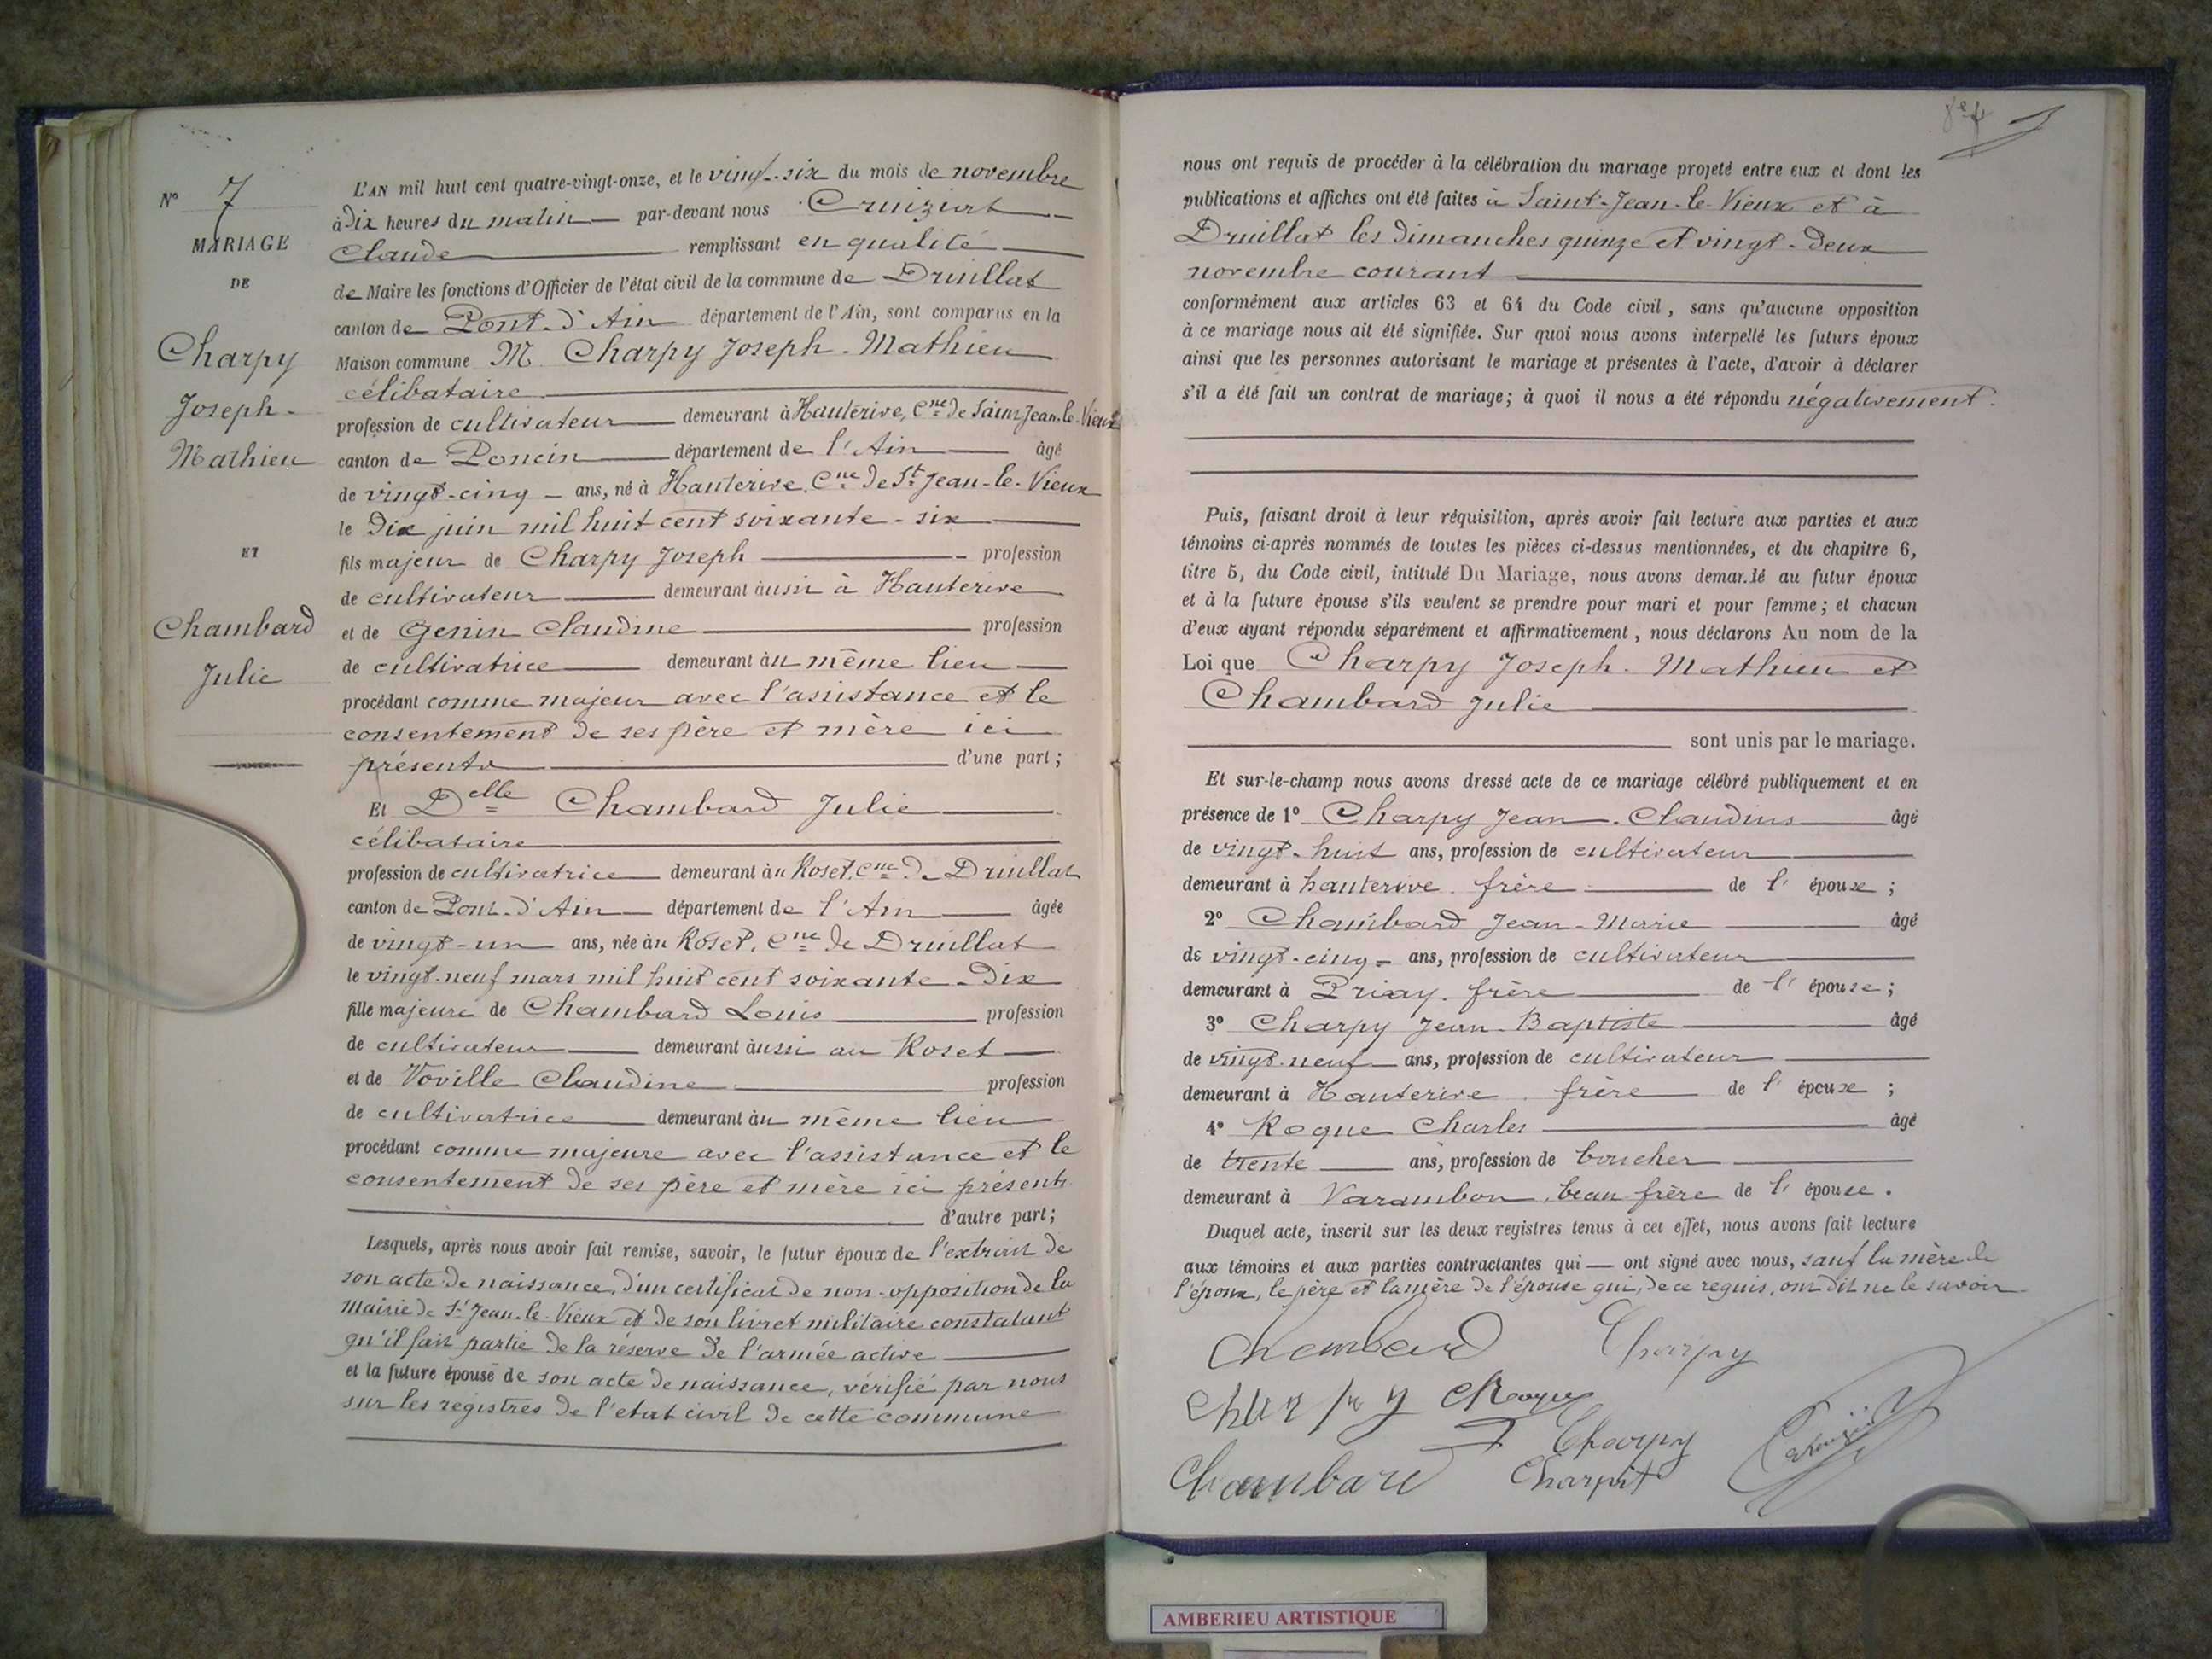 N° 7
MARIAGE
DE
Charpy
Joseph-
Mathieu
ET
Chambard
Julie
L'AN mil huit cent quatre-vingt-onze, et le vingt-six du mois de novembre
à dix heures du matin par-devant nous Cruiziat
Claude remplissant en qualité
de Maire les fonctions d'Officier de l'état civil de la commune de Druillat
canton de Pont-d'Ain département de l'Ain, sont comparus en la
Maison commune M. Charpy Joseph-Mathieu
célibataire
profession de cultivateur demeurant à Hauterive, Cne de Saint-Jean-le-Vieux
canton de Poncin département de l'Ain âgé
de vingt-cinq ans, né à Hauterive, Cne de St Jean-le-Vieux
le dix juin mil huit cent soixante-six
fils majeur de Charpy Joseph profession
de cultivateur demeurant aussi à Hauterive
et de Genin Claudine profession
de cultivatrice demeurant au même lieu
procédant comme majeur avec l'assistance et le
consentement de ses père et mère ici
présents d'une part;
Et Delle Chambard Julie
célibataire
profession de cultivatrice demeurant au Roset, Cne de Druillat
canton de Pont-d'Ain département de l'Ain âgée
de vingt-un ans, née au Roset, Cne de Druillat
le vingt-neuf mars mil huit cent soixante-dix
fille majeure de Chambard Louis profession
de cultivateur demeurant aussi au Roset
et de Voville Claudine profession
de cultivatrice demeurant au même lieu
procédant comme majeure avec l'assistance et le
consentement de ses père et mère ici présents
d'autre part;
Lesquels, après nous avoir fait remise, savoir, le futur époux de l'extrait de
son acte de naissance, d'un certificat de non-opposition de la
mairie de St Jean-le-Vieux et de son livret militaire constatant
qu'il fait partie de la réserve de l'armée active
et la future épouse de son acte de naissance, vérifié par nous
sur les registres de l'etat civil de cette commune
nous ont requis de procéder à la célébration du mariage projeté entre eux et dont les
publications et affiches ont été faites à Saint-Jean-le-Vieux et à
Druillat les dimanches quinze et vingt-deux
novembre courant
conformément aux articles 63 et 64 du Code civil, sans qu'aucune opposition
à ce mariage nous ait été signifiée. Sur quoi nous avons interpellé les futurs époux
ainsi que les personnes autorisant le mariage et présentes à l'acte, d'avoir à déclarer
s'il a été fait un contrat de mariage; à quoi il nous a été répondu négativement.
Puis, faisant droit à leur réquisition, après avoir fait lecture aux parties et aux
témoins ci-après nommés de toutes les pièces ci-dessus mentionnées, et du chapitre 6,
titre 5, du Code civil, intitulé Du Mariage, nous avons demandé au futur époux
et à la future épouse s'ils veulent se prendre pour mari et pour femme; et chacun
d'eux ayant répondu séparément et affirmativement, nous déclarons Au nom de la
Loi que Charpy Joseph-Mathieu et
Chambard Julie
sont unis par le mariage.
Et sur-le-champ nous avons dressé acte de ce mariage célébré publiquement et en
présence de 1° Charpy Jean-Claudius âgé
de vingt-huit ans, profession de cultivateur
demeurant à hauterive frère de l'épouse;
2° Chambard Jean-Marie âgé
de vingt-cinq ans, profession de cultivateur
demeurant à Priay. frère de l'épouse;
3° Charpy Jean-Baptiste âgé
de vingt-neuf ans, profession de cultivateur
demeurant à Hauterive. frère de l'épouse;
4° Rogue Charles âgé
de trente ans, profession de boucher
demeurant à Varambon, beau frère de l'épouse.
Duquel acte, inscrit sur les deux registres tenus à cet effet, nous avons fait lecture
aux témoins et aux parties contractantes qui ont signé avec nous, sauf la mère de
l'époux, le père et la mère de l'épouse qui, de ce requis, ont dit ne le savoir
Chambard Charpy
Charpy
Charpy
Chambard Charpit
AMBERIEU ARTISTIQUE